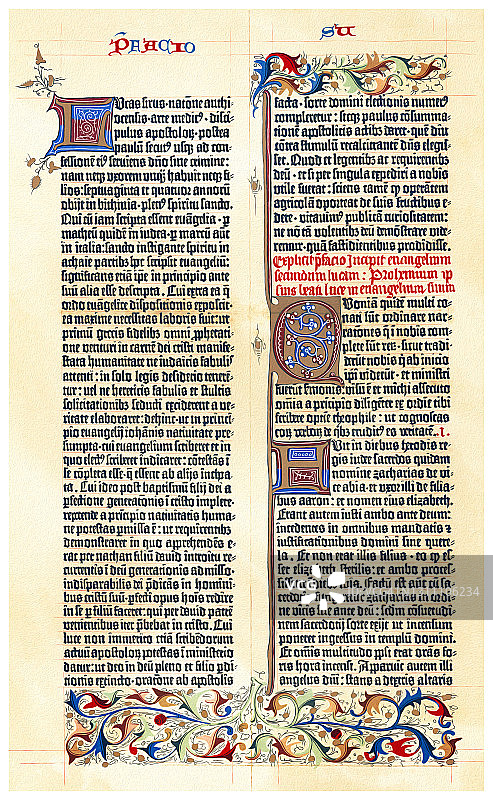 PFACIO
SU
Lucas sirus · natione anthi-
ocensis · arte medicus · disci-
pulus apostoloꝝ · postea
paulū secut9 usqꝫ ad con-
fessionē ei9 serviens dn̄o sine crimine:
nam neqꝫ uxorem unqͣ habuit neqꝫ fi-
lios: septuaginta et quatuor annoꝝ
obijt in bithinia · plen9 spiritu sancto.
Qui cū iam scripta essent euāgelia · ꝑ
matheū quidē in iudea · ꝑ marcū autē
in italia: sancto instigante spiritu in
achaie partibs hoc scripsit euāgeliū:
significans etiā ip̄e in principio ante
suū alia esse descripta. Cui extra ea q̄
ordo euāgelice dispositionis exposcit ·
ea maxime necessitas laboris fuit: ut
primū grecis fidelibs omni ꝓphetatione
venturi in carnē dei cristi manife-
stata humanitate ne iudaicis fabulis
attenti: in solo legis desiderio tenerē-
tur: vel ne hereticis fabulis et stultis
solicitationibs seducti exciderent a ve-
ritate elaboraret: dehinc · ut in princi-
pio euangelij iohānis nativitate pre-
sumpta · cui euangelium scriberet et in
quo elect9 scriberet indicaret: cōtestās ī
se cōpleta esse · q̄ essent ab alijs incho-
ata. Cui ideo post baptismū filij dei a
ꝑfectione generationis ī cristo implete ·
repetende a prīcipio nativitatis huma-
ne potestas ꝑmissa ē: ut requirentibs
demonstraret in quo apprehendēs e-
rat per nathan filiū david introitu re-
currentis ī deū generationis admisso ·
indisparabilis dei p̄dicās in homini-
bus cristū suū · ꝑfecti opus hoīs redire
in se ꝑ filiū faceret: qui per david patrē
venientibus iter p̄bebat in cristo. Cui
luce non immerito etiā scribēdorum
actuū apostoloꝝ potestas ī ministerio
datur: ut deo in deū pleno et filio ꝓdi-
tionis extincto · oratione ab apostolis
facta · sorte domini electionis numer9
compleretur: sicqꝫ paulus cōsumma-
tionē apostolicis actibs daret · quē diu
cōtra stimulū recalcitrantē dn̄s elegis-
set. Quod et legentibs ac requirentibs
deū · et si per singula expediri a nobis
vtile fuerat: sciens tamē qͥ operātem
agricolā oporteat de suis fructibus e-
dere · vitavim9 publicā curiositatem:
ne nō tā volentibs deū demōstrare vi-
deremur · quā fastidientibus prodidisse.
Explicit p̄facio Incipit euangelium
secundum lucam: Prohemium ip-
sius beati luce in euangelium suum
Quoniā quidē multi co-
nati sūt ordinare nar-
rationes q̄ i nobis com-
plete sūt reꝝ · sicut tradi-
derūt nobis q̄ ab inicio
ip̄i viderūt · et ministri
fuerūt sermonis: visū ē et michi assecuto
omīa a prīcipio diligēter ex ordīe tibi
scribere optīe theophile: ut cognoscas
eoꝝ verboꝝ de qͥbs erudit9 es veritatē. I.
Fuit in diebus herodis re-
gis iude sacerdos quidam
nomine zacharias de vi-
ce abia · et vxor illi de filia-
bus aaron: et nomen eius elizabeth.
Erant autem iusti ambo ante deum:
incedentes in omnibus mandatis ⁊
iustificationibus domini sine quere-
la. Et non erat illis filius · eo qͥ es-
set elizabeth sterilis: et ambo proces-
Factū est autē cū sa-
ordine vicis sue ante deū: scd̄m cōsuetudi-
nem sacerdotij sorte exijt ut incensum
poneret ingressus in templū domini.
Et om̄is multitudo pp̄li erat orās fo-
ris hora incensi. Apparuit autem illi
angelus dn̄i: stans a dextris altaris
VCG